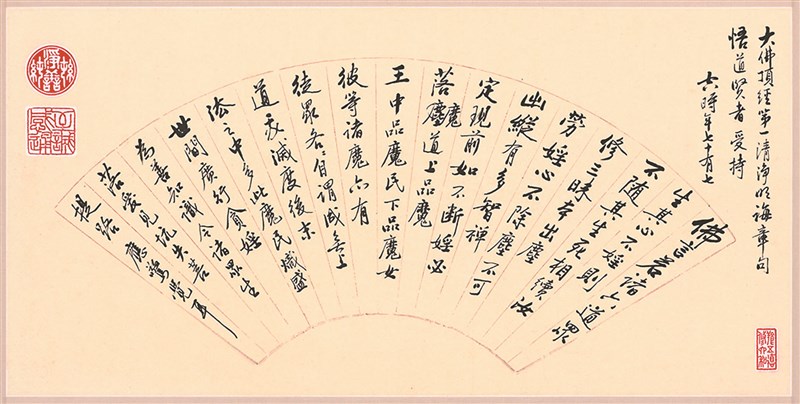 大佛頂經第一清淨明誨章句
悟道賢者受持
六時年七十有七
佛言若諸六道眾
生其心不婬則
不隨其生死相續汝
修三昧本出塵
勞婬心不除塵不可
出縱有多智禪
定現前如不斷婬必
落魔道上品魔
王中品魔民下品魔女
彼等諸魔亦有
徒眾各各自謂成無上
道我滅度後末
法之中多此魔民熾盛
世間廣行貪婬
為善知識令諸眾生
落愛見坑失菩
提路應驚覺耳